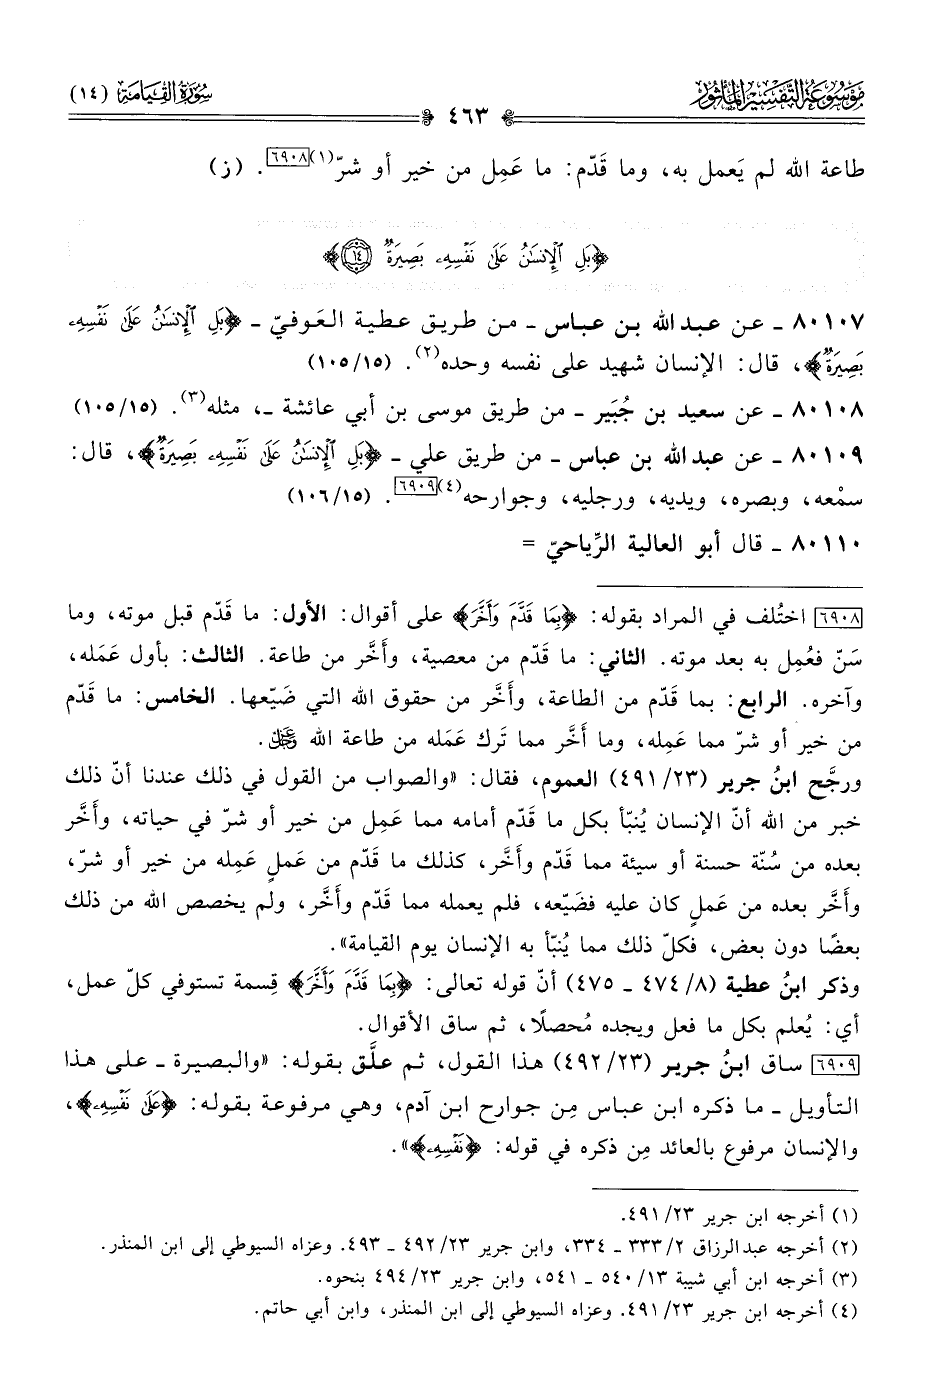 مَوْسُوعَة التَّفْسِيرِ المَأْثُور
سُورَةُ القِيَامَة (١٤)
٤٦٣
طاعة الله لم يَعمل به، وما قَدّم: ما عَمِل من خير أو شرّ(١)[٦٩٠٨]. (ز)
﴿بَلِ ٱلْإِنسَٰنُ عَلَىٰ نَفْسِهِۦ بَصِيرَةٌ ١٤﴾
٨٠١٠٧ ـ عـن عبدالله بـن عباس ـ مـن طريق عطية العَوفيّ ـ ﴿بَلِ ٱلْإِنسَٰنُ عَلَىٰ نَفْسِهِۦ
بَصِيرَةٌ﴾، قال: الإنسان شهيد على نفسه وحده(٢). (١٠٥/١٥)
٨٠١٠٨ ـ عن سعيد بن جُبَير ـ من طريق موسى بن أبي عائشة ـ، مثله(٣). (١٠٥/١٥)
٨٠١٠٩ ـ عن عبدالله بن عباس ـ من طريق علي ـ ﴿بَلِ ٱلْإِنسَٰنُ عَلَىٰ نَفْسِهِۦ بَصِيرَةٌ﴾، قال:
سمْعه، وبصره، ويديه، ورجليه، وجوارحه(٤)[٦٩٠٩]. (١٠٦/١٥)
٨٠١١٠ ـ قال أبو العالية الرِّياحيّ =
[٦٩٠٨] اختُلف في المراد بقوله: ﴿بِمَا قَدَّمَ وَأَخَّرَ﴾ على أقوال: الأول: ما قَدّم قبل موته، وما
سَنّ فعُمِل به بعد موته. الثاني: ما قَدّم من معصية، وأَخَّر من طاعة. الثالث: بأول عَمَله،
وآخره. الرابع: بما قَدّم من الطاعة، وأَخَّر من حقوق الله التي ضَيّعها. الخامس: ما قَدّم
من خير أو شرّ مما عَمِله، وما أَخَّر مما تَرك عَمَله من طاعة الله ﷻ.
ورجَّح ابنُ جرير (٤٩١/٢٣) العموم، فقال: «والصواب من القول في ذلك عندنا أنّ ذلك
خبر من الله أنّ الإنسان يُنبّأ بكل ما قَدّم أمامه مما عَمِل من خير أو شرّ في حياته، وأَخَّر
بعده من سُنّة حسنة أو سيئة مما قَدّم وأَخَّر، كذلك ما قَدّم من عَملٍ عَمِله من خير أو شرّ،
وأَخَّر بعده من عَملٍ كان عليه فضَيّعه، فلم يعمله مما قَدّم وأَخَّر، ولم يخصص الله من ذلك
بعضًا دون بعض، فكلّ ذلك مما يُنبّأ به الإنسان يوم القيامة».
وذكر ابنُ عطية (٨/ ٤٧٤ ـ ٤٧٥) أنّ قوله تعالى: ﴿بِمَا قَدَّمَ وَأَخَّرَ﴾ قِسمة تستوفي كلّ عمل،
أي: يُعلم بكل ما فعل ويجده مُحصلًا، ثم ساق الأقوال.
[٦٩٠٩] ساق ابنُ جرير (٤٩٢/٢٣) هذا القول، ثم علّق بقوله: «والبصيرة ـ على هذا
التأويل ـ ما ذكره ابن عباس مِن جوارح ابن آدم، وهي مرفوعة بقوله: ﴿عَلَىٰ نَفْسِهِۦ﴾،
والإنسان مرفوع بالعائد مِن ذكره في قوله: ﴿نَفْسِهِۦ﴾».
(١) أخرجه ابن جرير ٤٩١/٢٣.
(٢) أخرجه عبدالرزاق ٢/ ٣٣٣ ـ ٣٣٤، وابن جرير ٢٣/ ٤٩٢ ـ ٤٩٣. وعزاه السيوطي إلى ابن المنذر.
(٣) أخرجه ابن أبي شيبة ١٣/ ٥٤٠ ـ ٥٤١، وابن جرير ٤٩٤/٢٣ بنحوه.
(٤) أخرجه ابن جرير ٤٩١/٢٣. وعزاه السيوطي إلى ابن المنذر، وابن أبي حاتم.